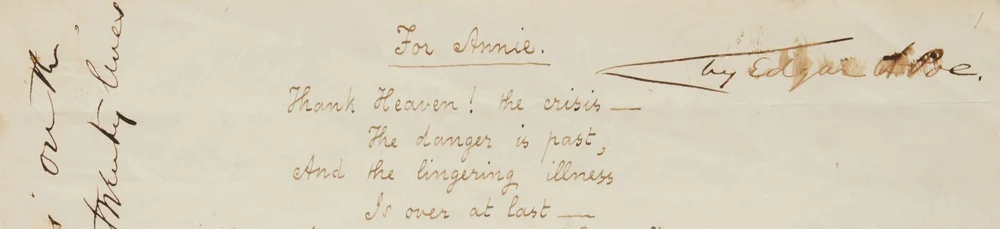 For Annie.
by Edgar A. Poe.
Thank Heaven! the crisis —
The danger is past,
And the lingering illness
Is over at last —
on th
lines